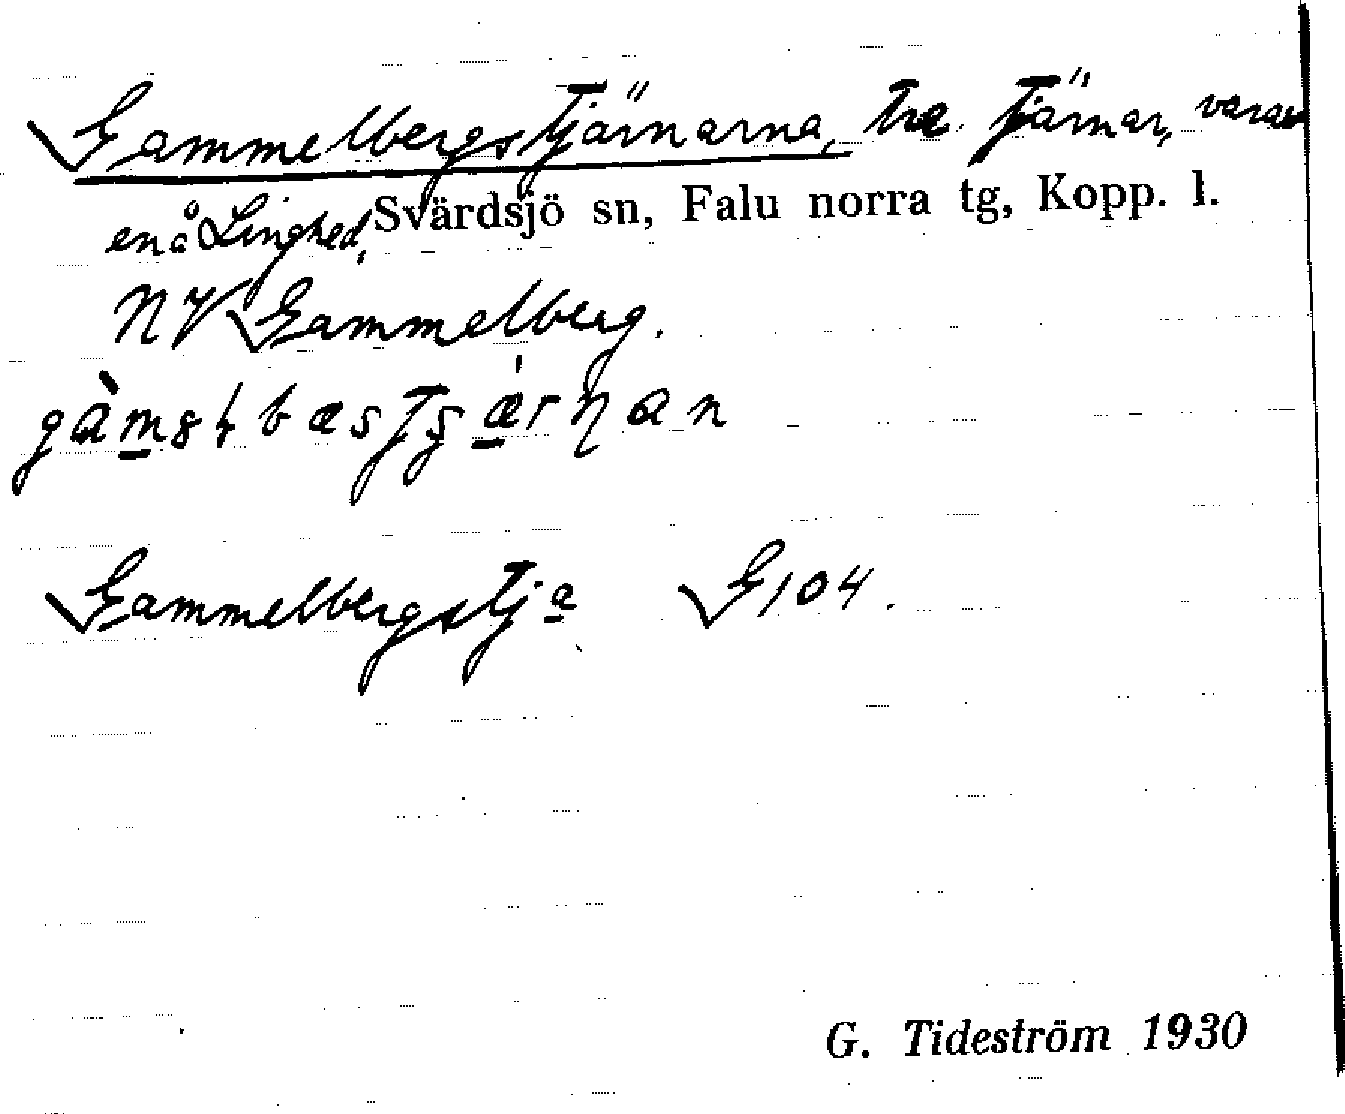 Gammelbergstjärnarna, tre tjärnar, varav
Svärdsjö sn, Falu norra tg, Kopp. l.
en å Linghed,
NV Gammelberg.
Gammelbergstja G104.
G. Tideström 1930